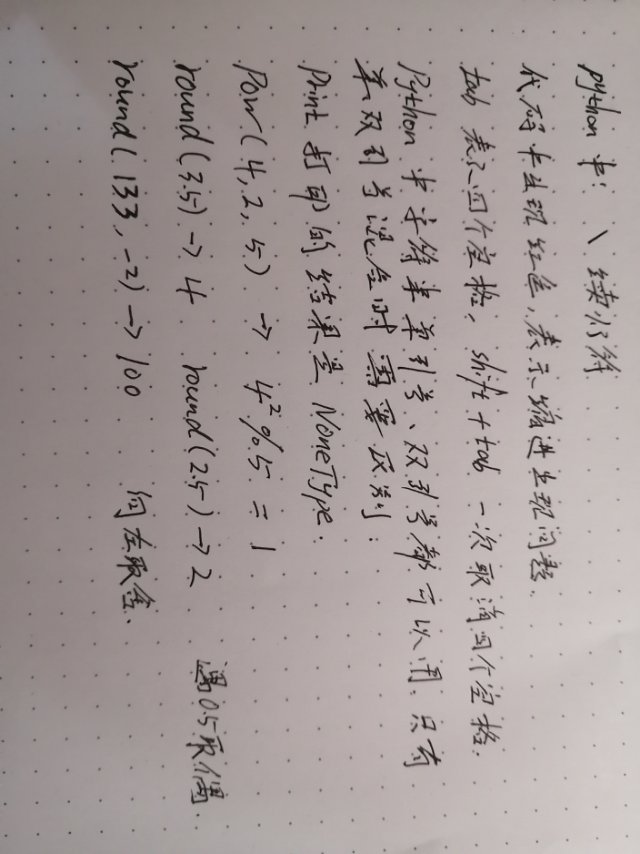 python 中: \ 续行符
代码中出现红色,表示缩进出现问题.
tab 表示四个空格, shift + tab 一次取消四个空格.
Python 中字符串单引号、双引号都可以用,只有
单双引号混合时需要区别;
Print 打印的结果是 NoneType.
Pow(4,2,5) → 4²%5=1
round(3.5)→4 round(2.5)→2 遇0.5取偶.
round(133,-2)→100 向左取舍.